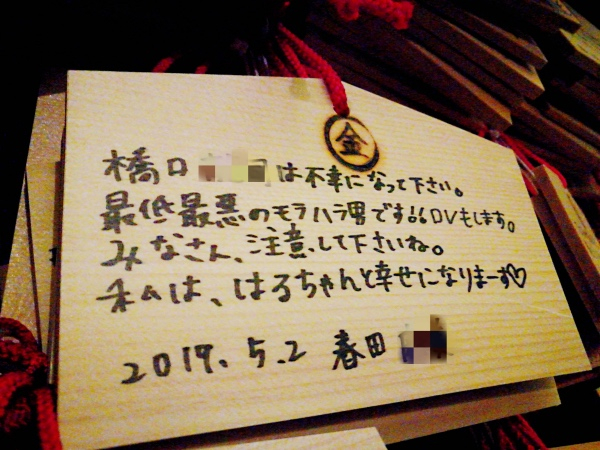 金
橋口 は不幸になって下さい。
最低最悪のモラハラ男です!!DVもします。
みなさん、注意して下さいね。
私は、はるちゃんと幸せになりまーす♡
2017.5.2 春田